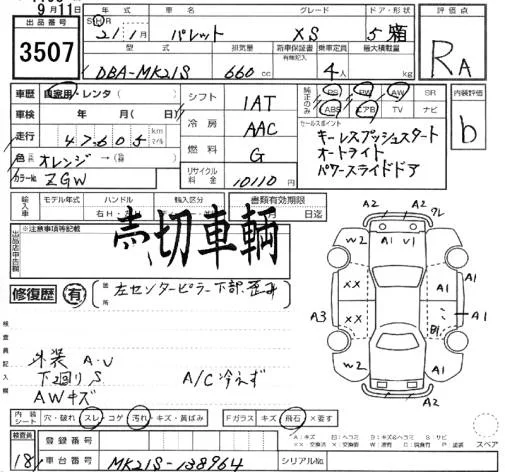 9月11日
出品番号
3507
年式 車名 グレード ドア・形状
SH 21/1月 パレット XS 5 箱
型式 排気量 諸車保証書 有無記入 乗車定員 最大積載量
DBA-MK21S 660cc 4人 kg
評価点
RA
車歴 自家用・レンタ( )
車検 年 月( 日)
走行 47,605 km マイル
色 オレンジ →( 色)
カラーNo. ZGW
シフト 1AT
冷房 AAC
燃料 G
リサイクル料金 10110円
純正のみ PS PW AW SR
ABS エアB TV ナビ
内装評価
b
セールスポイント
キーレスプッシュスタート
オートライト
パワースライドドア
輸入車 モデル年式 ハンドル 輸入区分 書類有効期限
右H・ 月 日迄
出品店申告欄 ※注意事項等記載
売切車輌
修復歴 有 箇所 左センターピラー下部歪み
検査員記入欄
外装 A・U
下廻りS A/C冷えず
AWキズ
内装シート 穴・破れ スレ・コゲ 汚れ・キズ・黄ばみ Fガラス キズ 飛石 ×要す
検査員 18
登録番号
車台番号 MK21S-138964 シリアルNo.
A2 A2
A1 V1
W2 A1
XX A1
A3 XX A1
B1
W2 A1
A2
スペア